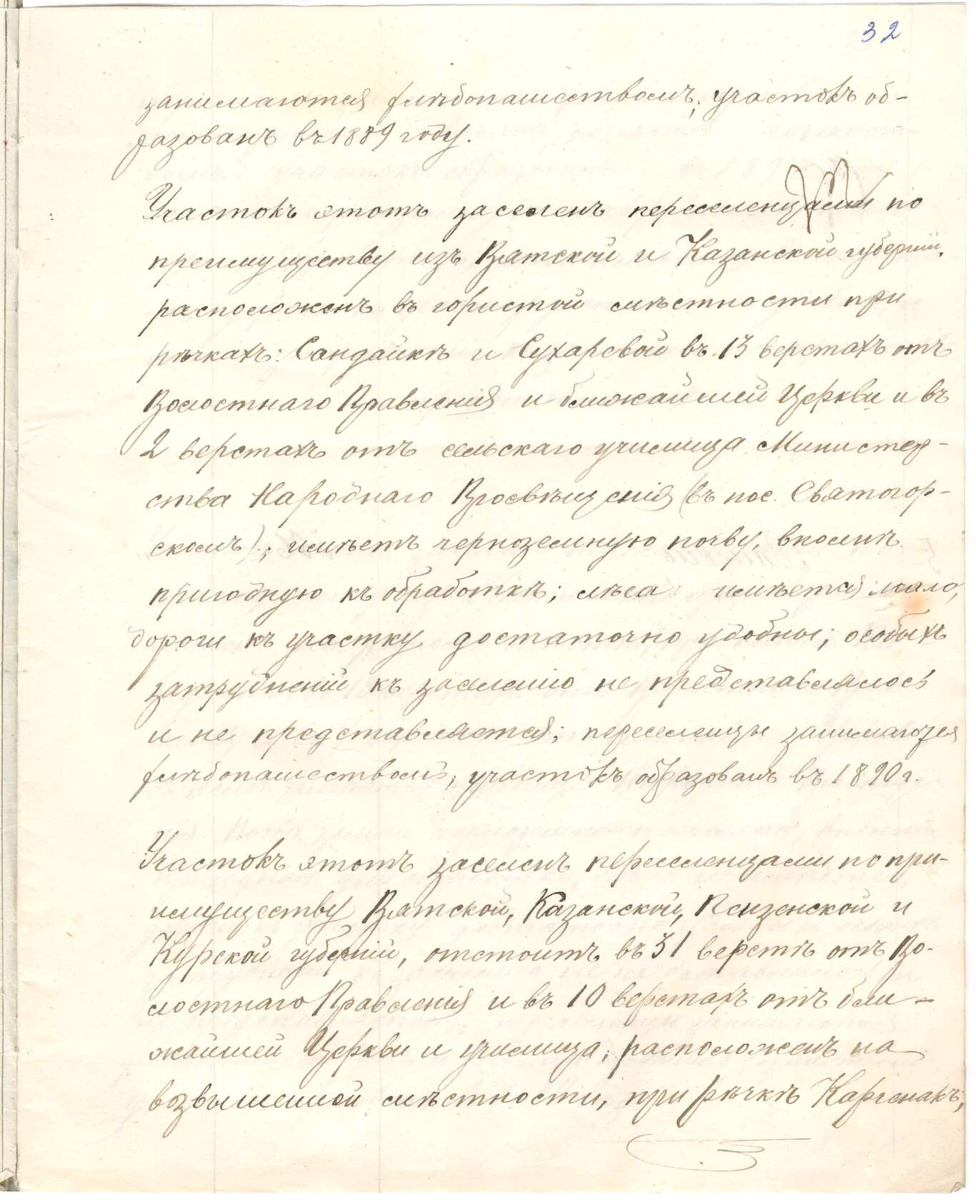 32
занимаются хлѣбопашествомъ; участокъ об-
разованъ въ 1889 году.
Участокъ этотъ заселенъ переселенцами по
преимуществу изъ Вятской и Казанской губерній,
расположенъ въ гористой мѣстности при
рѣчкахъ: Сандайкѣ и Сухаревой въ 13 верстахъ отъ
Волостнаго Правленія и ближайшей Церкви и въ
2 верстахъ отъ сельскаго училища Министер-
ства Народнаго Просвѣщенія (въ пос. Святогор-
скомъ); имѣетъ черноземную почву, вполнѣ
пригодную къ обработкѣ; лѣса имѣется мало,
дороги къ участку достаточно удобны; особыхъ
затрудненій къ заселенію не представлялось
и не представляется; переселенцы занимаются
хлѣбопашествомъ, участокъ образованъ въ 1890 г.
Участокъ этотъ заселенъ переселенцами по пре-
имуществу Вятской, Казанской, Пензенской и
Курской губерній, отстоитъ въ 31 верстѣ отъ Во-
лостнаго Правленія и въ 10 верстахъ отъ бли-
жайшей Церкви и училища, расположенъ на
возвышенной мѣстности, при рѣчкѣ